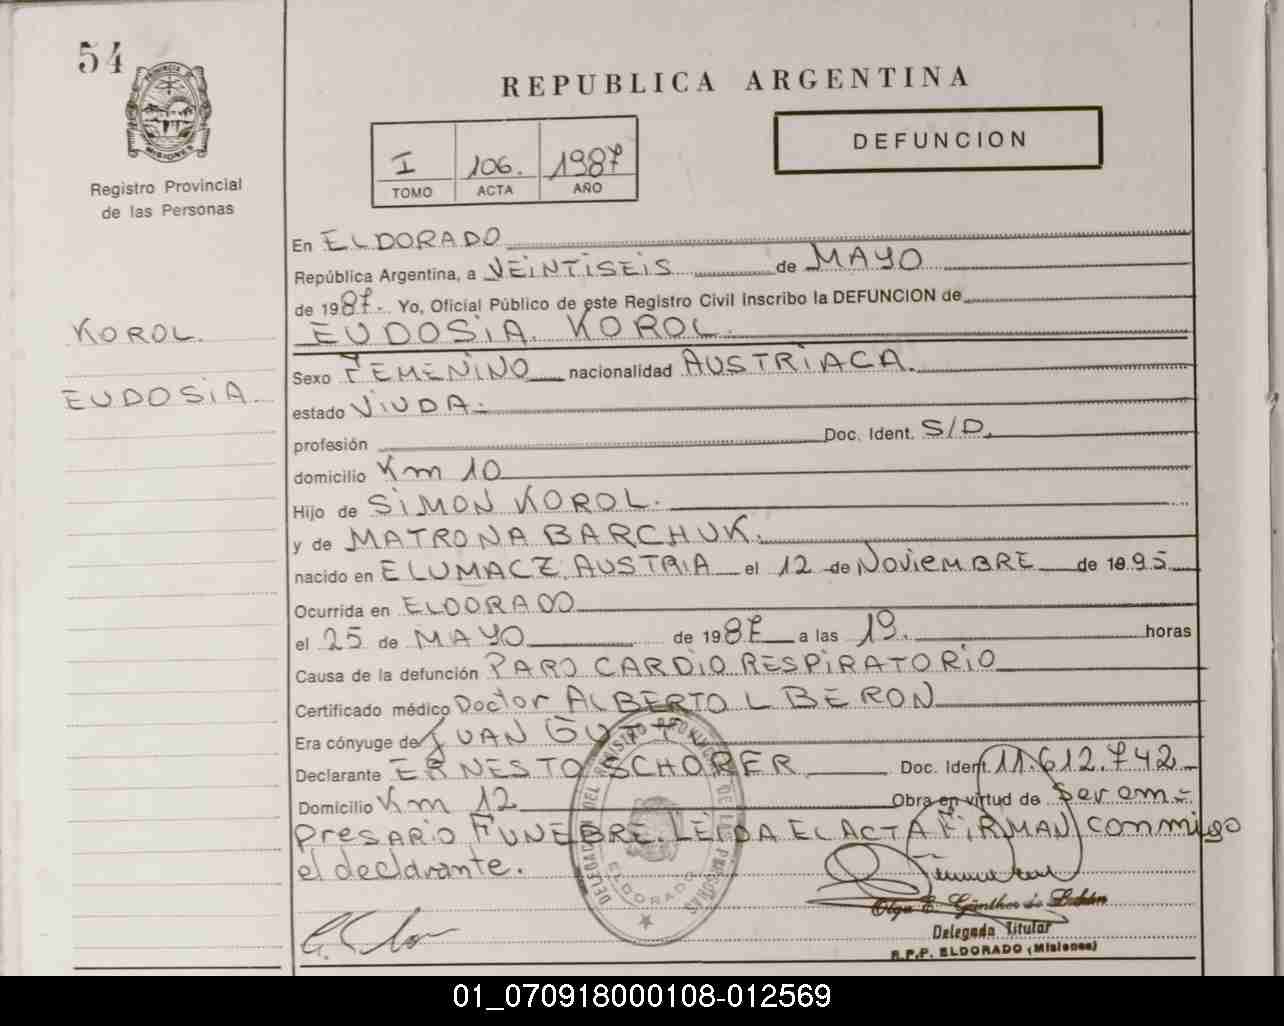 54
PROVINCIA DE
MISIONES
Registro Provincial
de las Personas
KOROL.
EUDOSIA.
REPUBLICA ARGENTINA
I 106. 1987
TOMO ACTA AÑO
DEFUNCION
En ELDORADO
República Argentina, a VEINTISEIS de MAYO
de 1987.- Yo, Oficial Público de este Registro Civil Inscribo la DEFUNCION de
EUDOSIA. KOROL.
Sexo FEMENINO nacionalidad AUSTRIACA.
estado VIUDA.-
profesión Doc. Ident. S/D.
domicilio Km 10
Hijo de SIMON KOROL.
y de MATRONA BARCHUK.
nacido en ELUMACZ, AUSTRIA el 12 de NoviemBRE de 1895
Ocurrida en ELDORADO
el 25 de MAYO de 1987 a las 19. horas
Causa de la defunción PARO CARDIO RESPIRATORIO
Certificado médico Doctor ALBERTO L BERON
Era cónyuge de JUAN
Declarante ERNESTO SCHORER Doc. Ident. 11.612.742
Domicilio Km 12 Obra en virtud de Ser em-
PreSARIO FUNEBRE. LEIDA EL ACTA FIRMAN conmigo
el declarante.
DELEGACION DEL REGISTRO PROVINCIAL DE LAS PERSONAS
ELDORADO
Olga E. Günther de
Delegada Titular
R.P.P. ELDORADO (Misiones)
01_070918000108-012569